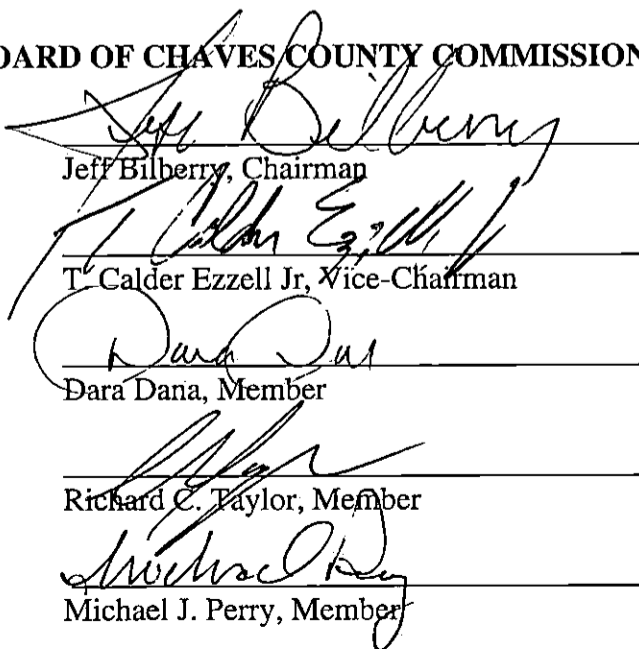 OARD OF CHAVES COUNTY COMMISSION
Jeff Bilberry
Jeff Bilberry, Chairman
T. Calder Ezzell Jr
T. Calder Ezzell Jr, Vice-Chairman
Dara Dana
Dara Dana, Member
Richard C. Taylor, Member
Michael Perry
Michael J. Perry, Member